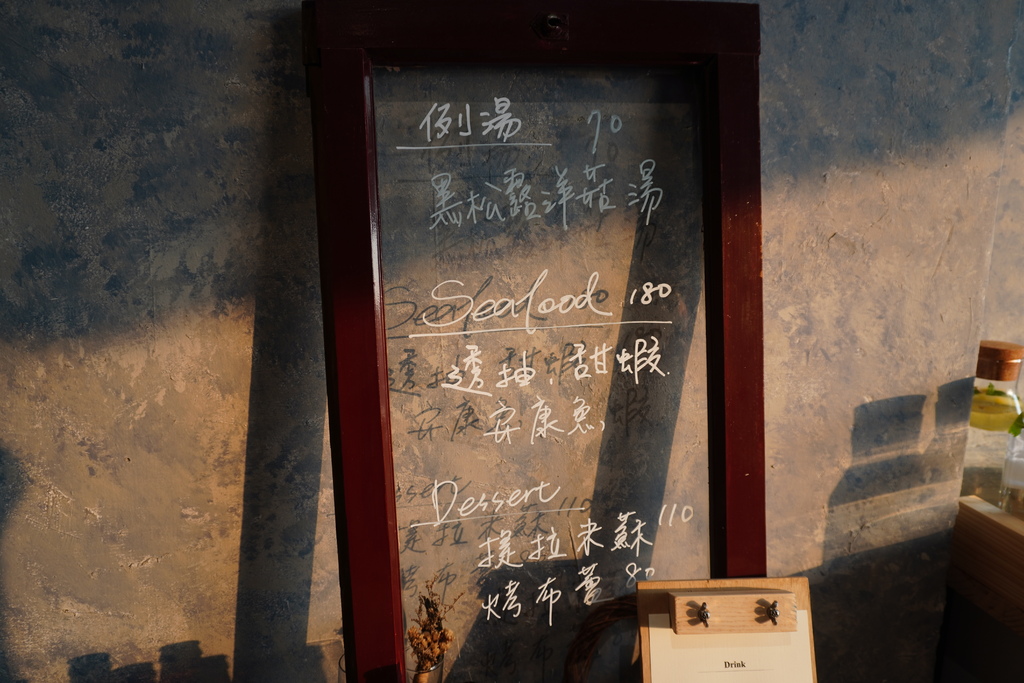 例湯 70
黑松露洋菇湯
Seafood 180
透抽、甜蝦
安康魚
Dessert
提拉米蘇 110
烤布蕾 80
Drink